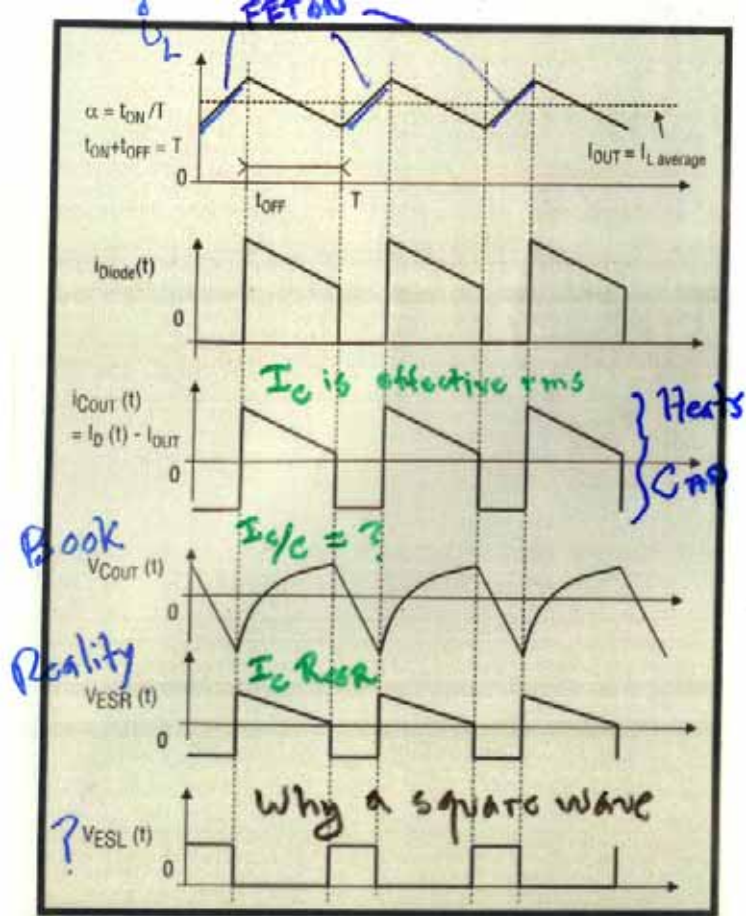 FET ON
i_L
α = t_ON /T
t_ON+t_OFF = T
I_OUT = I_L average
0
t_OFF T
i_Diode(t)
0
I_c is effective rms
i_COUT (t)
= I_D (t) - I_OUT
0
Heats
CAP
Book
I_c/c = ?
V_COUT (t)
0
Reality
I_c R_ESR
V_ESR (t)
0
Why a square wave
? V_ESL (t)
0